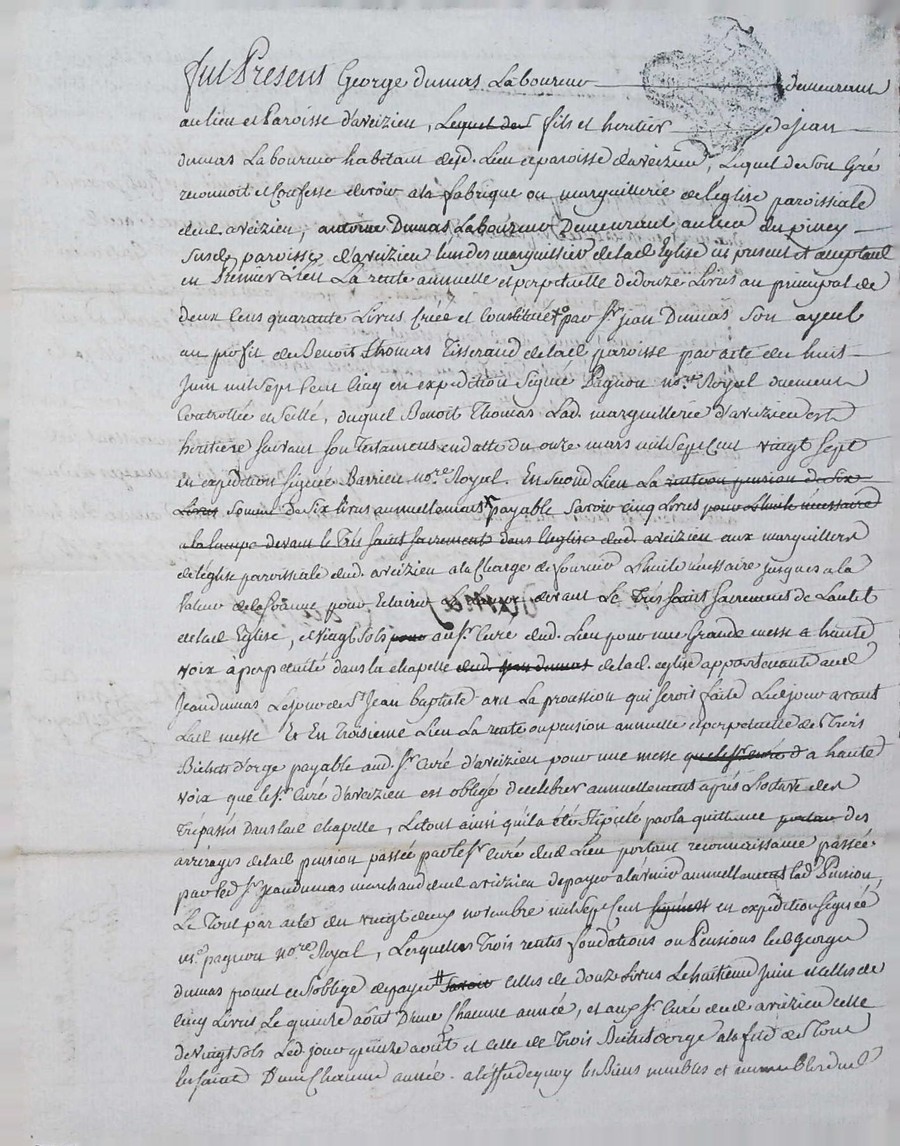 fut Present George dumas Laboureur demeurant
au lieu et Paroisse d'aveizieu, Lequel des fils et heritier de jean
dumas Laboureur habitant dud. Lieu et paroisse d'aveizieu, Lequel de son Gré
reconnoit et Confesse devoir a la fabrique ou marguillerie de l'église paroissiale
dud. aveizieu, antoine Dumas Laboureur Demeurant au lieu du piney
susd. paroisse d'aveizieu lun des marguillier de lad. Eglise ici present et acceptant
en Premier Lieu La rente annuelle et perpetuelle de douze Livres au principal de
deux Cens quarante Livres Créée et Constituée par Sr. jean Dumas son ayeul
au profit de Benoit Thomas Tisserand de lad. paroisse par acte du huit
Juin mil sept Cent Cinq en expedition signé Pagnon no.re Royal duement
Controllée et scellé, duquel Benoit Thomas Lad. marguillerie d'aveizieu est
heritiere suivant son Testament en datte du onze mars mil sept Cent vingt sept
en expédition signée Barrieu no.re Royal. En second Lieu La rente ou pension de six
Livres somme De six livres annuellement payable savoir cinq Livres pour L'huile nécessaire
a la lampe devant le Très saint sacrement dans l'eglise dud. aveizieu aux marguilliers
de l'église paroissiale dud. aveizieu a la Charge de fournir L'huile nécessaire jusques a la
valeur de la somme pour Eclairer La lampe devant Le Très saint sacrement de L'autel
de lad. Eglise, et vingt sols pour au Sr. Curé dud. Lieu pour une Grande messe a haute
voix à perpetuité dans la chapelle dud. jean dumas de lad. eglise appartenante aud.
Jean dumas Le jour de St. Jean baptiste avec La procession qui seroit faite Led. jour avant
Lad. messe Et En Troisieme Lieu La rente ou pension annuelle et perpetuelle de Trois
Bichets d'orge payable aud. Sr. Curé d'aveizieu pour une messe que led. Sr. curé a haute
voix que le Sr. Curé d'aveizieu est obligé de celebrer annuellement après L'octave des
Trépassés dans lad. chapelle, Le tout ainsi quil a été stipulé par la quittance portant des
arrerages de lad. pension passée par le Sr. Curé dud. Lieu portant reconnaissance passée
par led. Sr. Jean dumas marchand dud. aveizieu de payer a l'avenir annuellement lad. Pension,
Le Tout par acte du vingt deux novembre mil sept Cent en expédition signée
m.e pagnon no.re Royal, Lesquelles Trois rentes fondations ou Pensions led. George
dumas promet et s'oblige de payer savoir celles de douze Livres Le huitieme juin et celles de
Cinq Livres Le quinze août D'une chacune année, et aux Sr. Curé dud. aveizieu celle
de vingt sols Led. jour quinze août et celle de Trois Bichets d'orge a la fête de Tous
les saints D'une Chacune année. a l'effet de quoy les Biens meubles et immeubles dud.